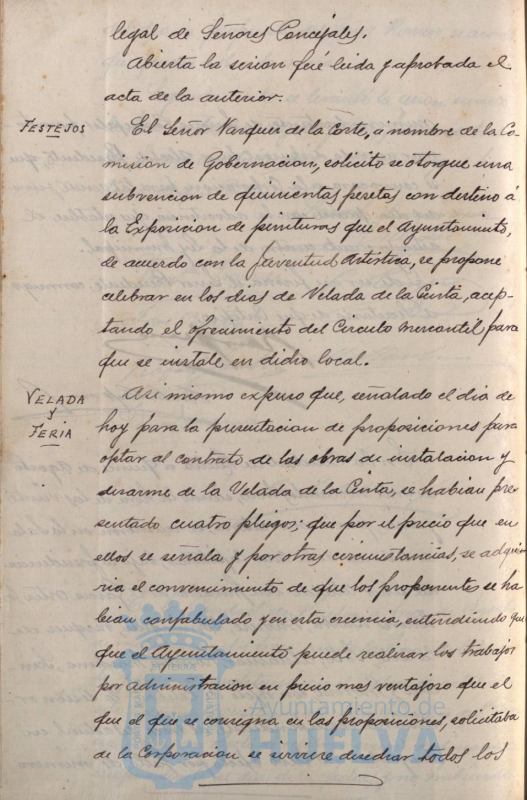 legal de Señores Concejales.
Abierta la sesion fué leida y aprobada el
acta de la anterior.
FESTEJOS
El Señor Vazquez de la Corte, á nombre de la Co-
mision de Gobernacion, solicitó se otorgue una
subvencion de quinientas pesetas con destino á
la Exposicion de pinturas que el Ayuntamiento,
de acuerdo con la Juventud Artistica, se propone
celebrar en los dias de Velada de la Cinta, acep-
tando el ofrecimiento del Circulo Mercantil para
que se instale en dicho local.
VELADA
Y
FERIA
Asi mismo expuso que, señalado el dia de
hoy para la presentacion de proposiciones para
optar al contrato de las obras de instalacion y
desarme de la Velada de la Cinta, se habian pre-
sentado cuatro pliegos; que por el precio que en
ellos se señala y por otras circunstancias, se adqui-
ria el convencimiento de que los proponentes se ha-
bian confabulado y en esta creencia, entendiendo
que el Ayuntamiento puede realizar los trabajos
por administracion en precio mas ventajoso que el
que al que se consigna en las proposiciones, solicitaba
de la Corporacion se sirviese desechar todos los
Ayuntamiento de
HUELVA